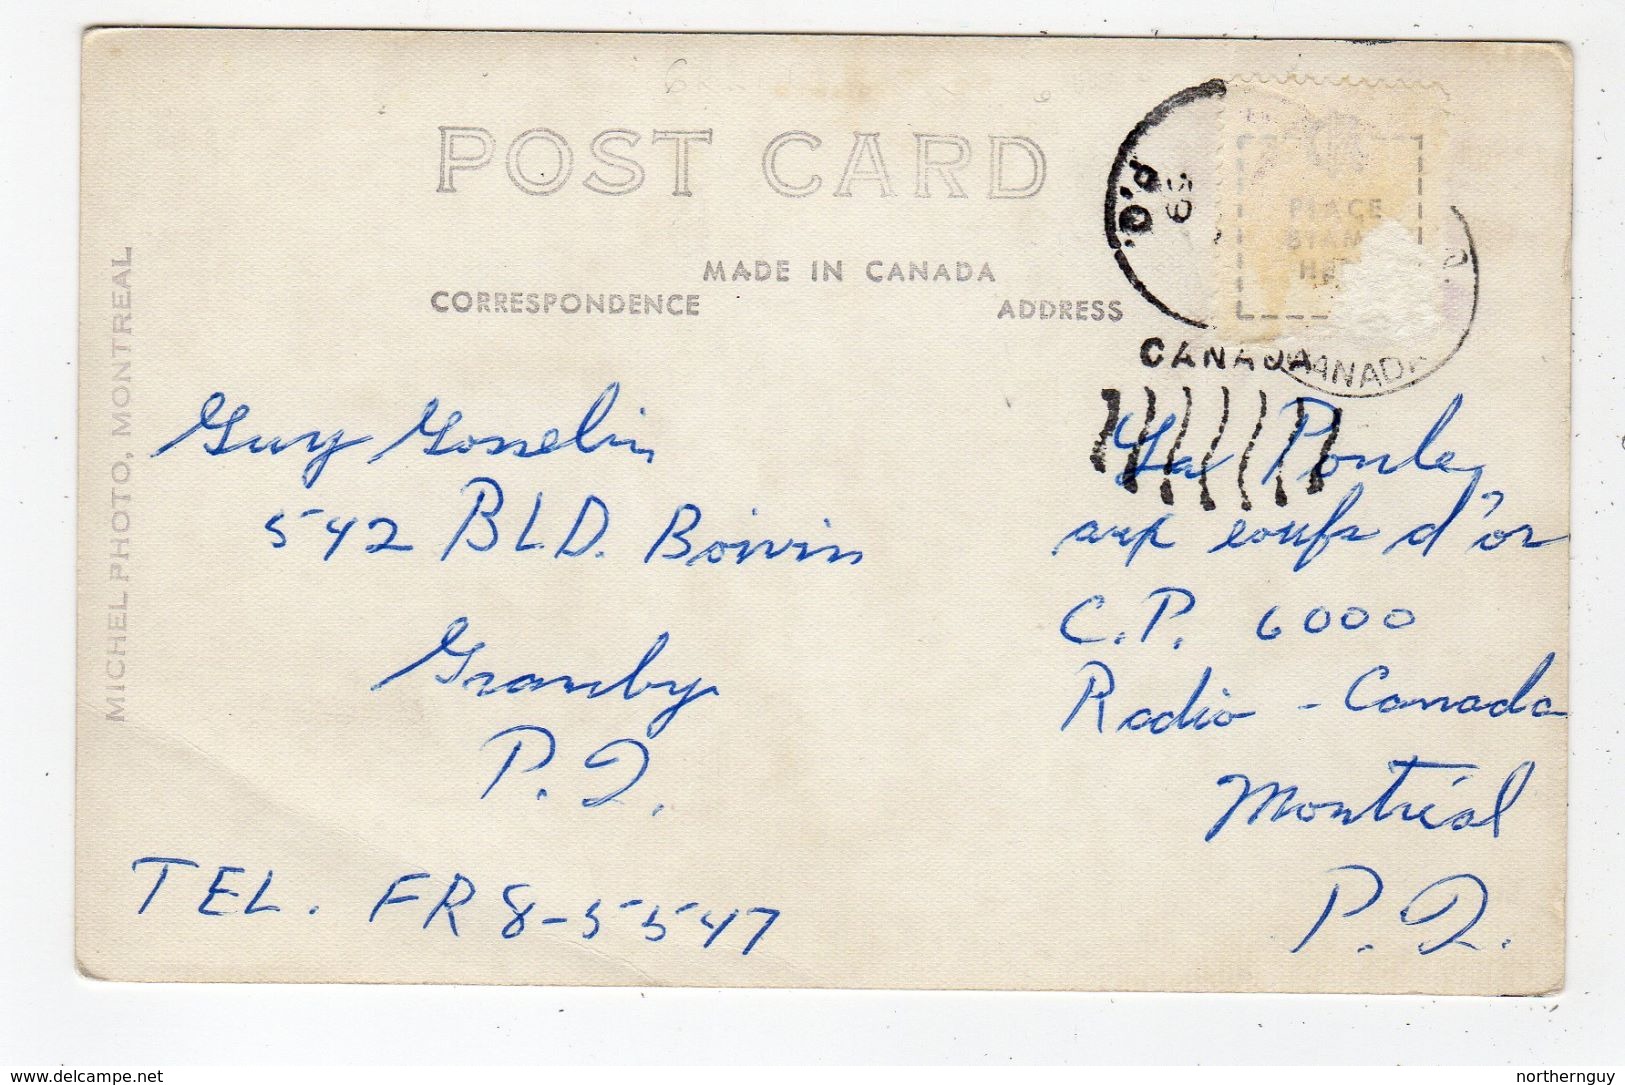 POST CARD
MADE IN CANADA
CORRESPONDENCE
ADDRESS
MICHEL PHOTO, MONTREAL
P.Q.
CANADA
PLACE
STAMP
CANADA
Guy Gosselin
542 BLD. Boivin
Granby
P.Q.
TEL. FR 8-5547
La Poule
aux eoufs d'or
C.P. 6000
Radio - Canada
Montréal
P.Q.
delcampe.net
northernguy